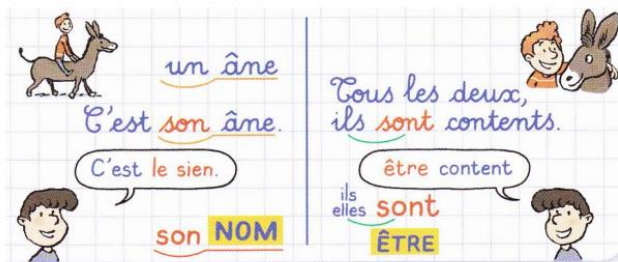 un âne
C'est son âne.
C'est le sien.
son NOM
Tous les deux,
ils sont contents.
être content
ils
elles sont
ÊTRE